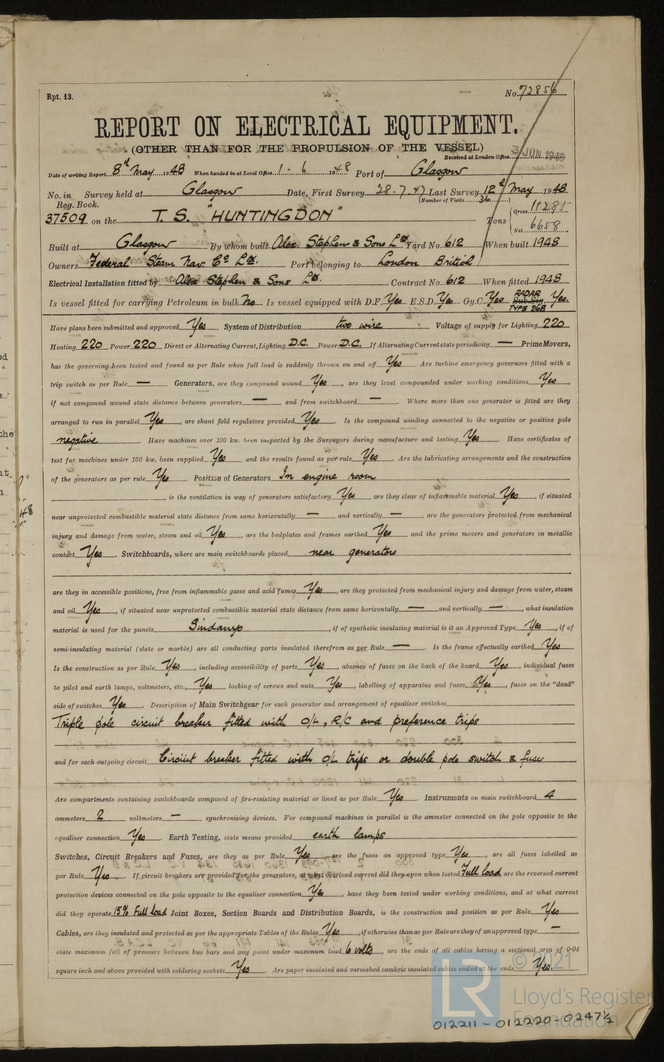 Rpt. 13.
No. 72856
REPORT ON ELECTRICAL EQUIPMENT.
(OTHER THAN FOR THE PROPULSION OF THE VESSEL)
Received at London Office 3 JUN 1948
Date of writing Report 8th May 1948 When handed in at Local Office 1-6 1948 Port of Glasgow
No. in Survey held at Glasgow Date, First Survey 28.7.47 Last Survey 12th May 1948
Reg. Book. (Number of Visits 36)
37509 on the T.S. "HUNTINGDON" Tons { Gross 11281 Net 6658
Built at Glasgow By whom built Alex. Stephen & Sons Ltd Yard No. 612 When built 1948
Owners Federal Steam Nav. Co Ltd. Port belonging to London British
Electrical Installation fitted by Alex Stephen & Sons Ltd. Contract No. 612 When fitted 1948
Is vessel fitted for carrying Petroleum in bulk No Is vessel equipped with D.F. Yes E.S.D. Yes Gy.C. Yes RADAR Sub.Sig. Yes.
TYPE 268
Have plans been submitted and approved Yes System of Distribution two wire Voltage of supply for Lighting 220
Heating 220 Power 220 Direct or Alternating Current, Lighting D.C. Power D.C. If Alternating Current state periodicity — Prime Movers,
has the governing been tested and found as per Rule when full load is suddenly thrown on and off Yes Are turbine emergency governors fitted with a
trip switch as per Rule — Generators, are they compound wound Yes, are they level compounded under working conditions Yes,
if not compound wound state distance between generators — and from switchboard — Where more than one generator is fitted are they
arranged to run in parallel Yes, are shunt field regulators provided Yes Is the compound winding connected to the negative or positive pole
negative Have machines over 100 kw. been inspected by the Surveyors during manufacture and testing Yes Have certificates of
test for machines under 100 kw. been supplied Yes and the results found as per rule Yes Are the lubricating arrangements and the construction
of the generators as per rule Yes Position of Generators In engine room
, is the ventilation in way of generators satisfactory Yes are they clear of inflammable material Yes, if situated
near unprotected combustible material state distance from same horizontally — and vertically —, are the generators protected from mechanical
injury and damage from water, steam and oil Yes, are the bedplates and frames earthed Yes and the prime movers and generators in metallic
contact Yes. Switchboards, where are main switchboards placed near generators
are they in accessible positions, free from inflammable gases and acid fumes Yes, are they protected from mechanical injury and damage from water, steam
and oil Yes, if situated near unprotected combustible material state distance from same horizontally — and vertically —, what insulation
material is used for the panels Sindanyo, if of synthetic insulating material is it an Approved Type Yes, if of
semi-insulating material (slate or marble) are all conducting parts insulated therefrom as per Rule — Is the frame effectually earthed Yes
Is the construction as per Rule Yes, including accessibility of parts Yes, absence of fuses on the back of the board Yes, individual fuses
to pilot and earth lamps, voltmeters, etc., Yes, locking of screws and nuts Yes, labelling of apparatus and fuses, Yes, fuses on the "dead"
side of switches Yes Description of Main Switchgear for each generator and arrangement of equaliser switches
Triple pole circuit breaker fitted with O/L, R/C and preference trips
and for each outgoing circuit Circuit breaker fitted with O/L trips or double pole switch & fuse
Are compartments containing switchboards composed of fire-resisting material or lined as per Rule Yes Instruments on main switchboard 4
ammeters 2 voltmeters — synchronising devices. For compound machines in parallel is the ammeter connected on the pole opposite to the
equaliser connection Yes Earth Testing, state means provided earth lamps
Switches, Circuit Breakers and Fuses, are they as per Rule Yes, are all fuses an approved type Yes, are all fuses labelled as
per Rule Yes If circuit breakers are provided for the generators, at what overload current did they open when tested Full load are the reversed current
protection devices connected on the pole opposite to the equaliser connection Yes, have they been tested under working conditions, and at what current
did they operate 15% Full Load Joint Boxes, Section Boards and Distribution Boards, is the construction and position as per Rule Yes
Cables, are they insulated and protected as per the appropriate Tables of the Rules Yes, if otherwise than as per Rule are they of an approved type —,
state maximum fall of pressure between bus bars and any point under maximum load 6 volts, are the ends of all cables having a sectional area of 0·04
square inch and above provided with soldering sockets Yes Are paper insulated and varnished cambric insulated cables sealed at the ends Yes.
© 2021
LR
Lloyd's Register
Foundation
012211 - 012220 - 0247½